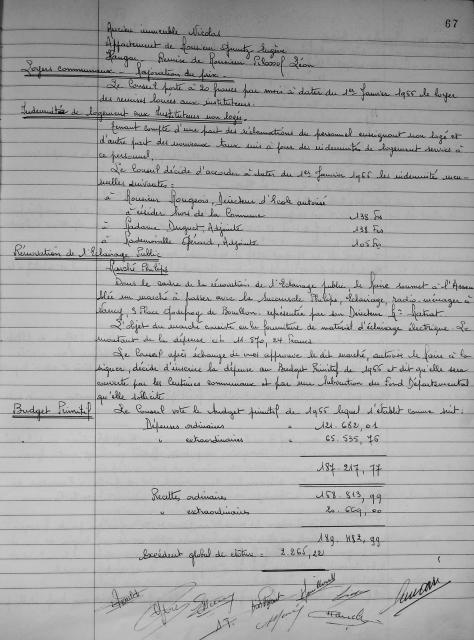 67
Ancien immeuble Nicolas
Appartement de Monsieur Eugène
Hangar Remise de Monsieur Léon
Loyers communaux - Majoration du prix -
Le Conseil porte à 20 francs par mois à dater du 1er Janvier 1966 le loyer
des remises louées aux instituteurs.
Indemnités de logement aux Instituteurs non logés.
Tenant compte d'une part des réclamations du personnel enseignant non logé et
d'autre part des nouveaux taux mis à jour des indemnités de logement servies à
ce personnel,
Le Conseil décide d'accorder à dater du 1er Janvier 1966 les indemnités men-
suelles suivantes :
à Monsieur Rougeois, Directeur d'Ecole autorisé
à résider hors de la Commune 138 Frs
à Madame Duguet, Adjointe 138 Frs
à Mademoiselle Gérard, Adjointe 105 Frs
Rénovation de l'Eclairage Public
Marché Philips
Dans le cadre de la rénovation de l'Eclairage public, le Maire soumet à l'Assem
blée un marché à passer avec la Succursale Philips, Eclairage, radio-ménager à
Nancy, 3 Place Godefroy de Bouillon, représentée par son Directeur
L'objet du marché consiste en la fourniture de matériel d'éclairage électrique. Le
montant de la dépense est 11.570,24 Francs
Le Conseil après échange de vues approuve le dit marché, autorise le Maire à le
signer, décide d'inscrire la dépense au Budget Primitif de 1966 et dit qu'elle sera
couverte par les Centimes communaux et par une subvention du Fond Départemental
qu'elle sollicite
Budget Primitif Le Conseil vote le budget primitif de 1966 lequel s'établit comme suit :
Dépenses ordinaires " 121.682,01
" extraordinaires " 65.535,76
187.217,77
Recettes ordinaires 168.813,99
" extraordinaires 20.669,00
189.482,99
Excédent global de clôture = 2.265,22